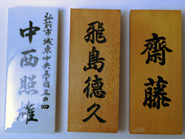 弘前市城東中央五丁目五の四
中西照雄
飛島德久
齋藤